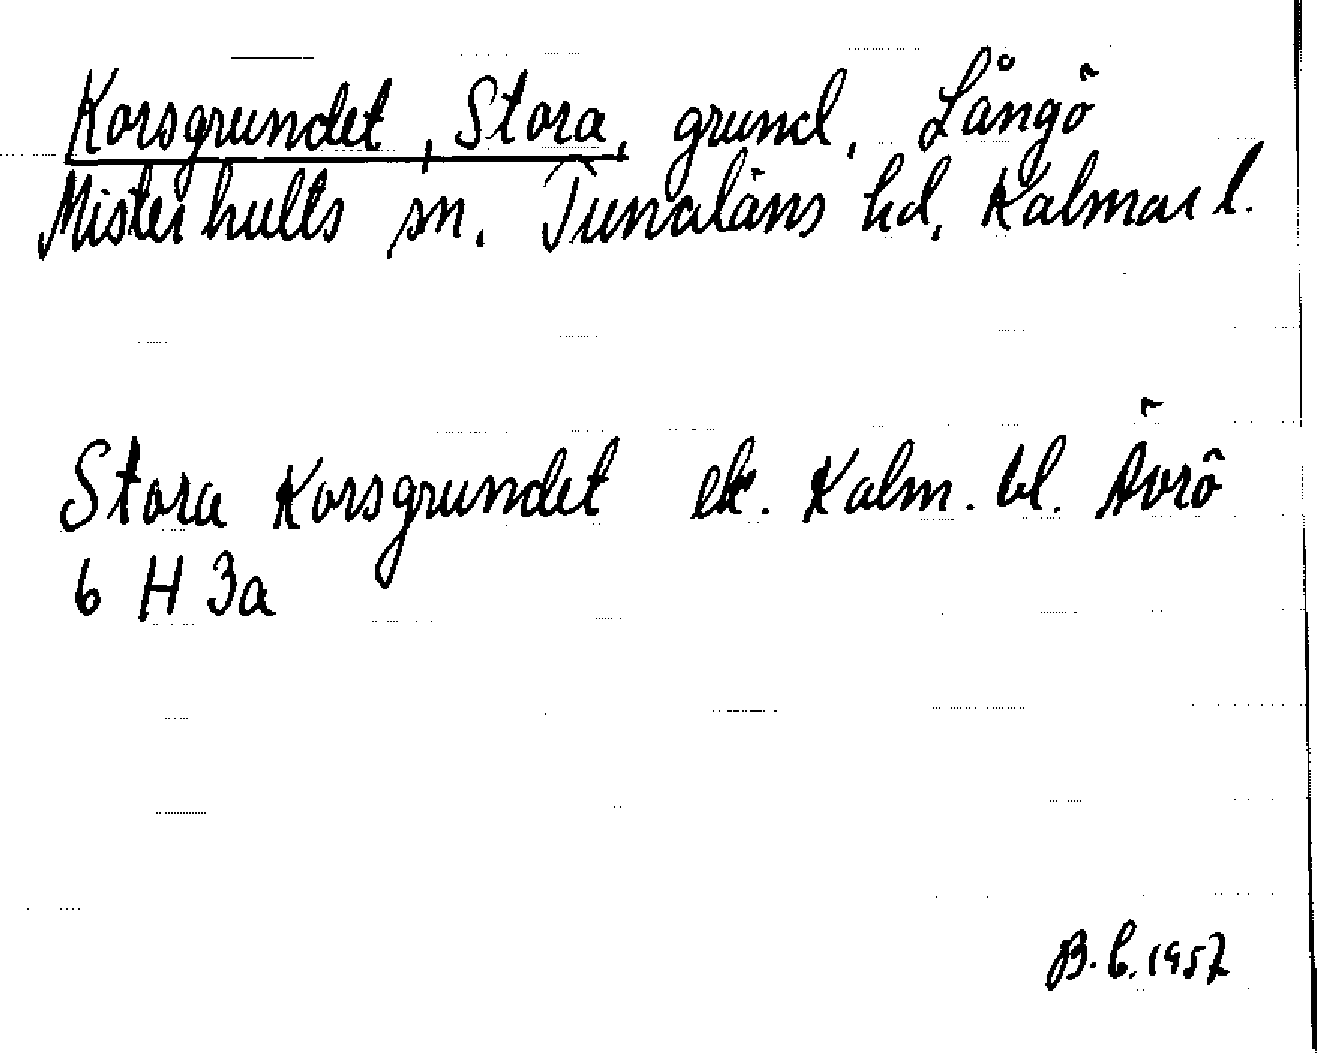 Korsgrundet, Stora, grund, Långö
Misterhults sn. Tunaläns hd, Kalmar l.
Stora Korsgrundet ek. Kalm. bl. Ävrö
6 H 3a
B. b. 1957